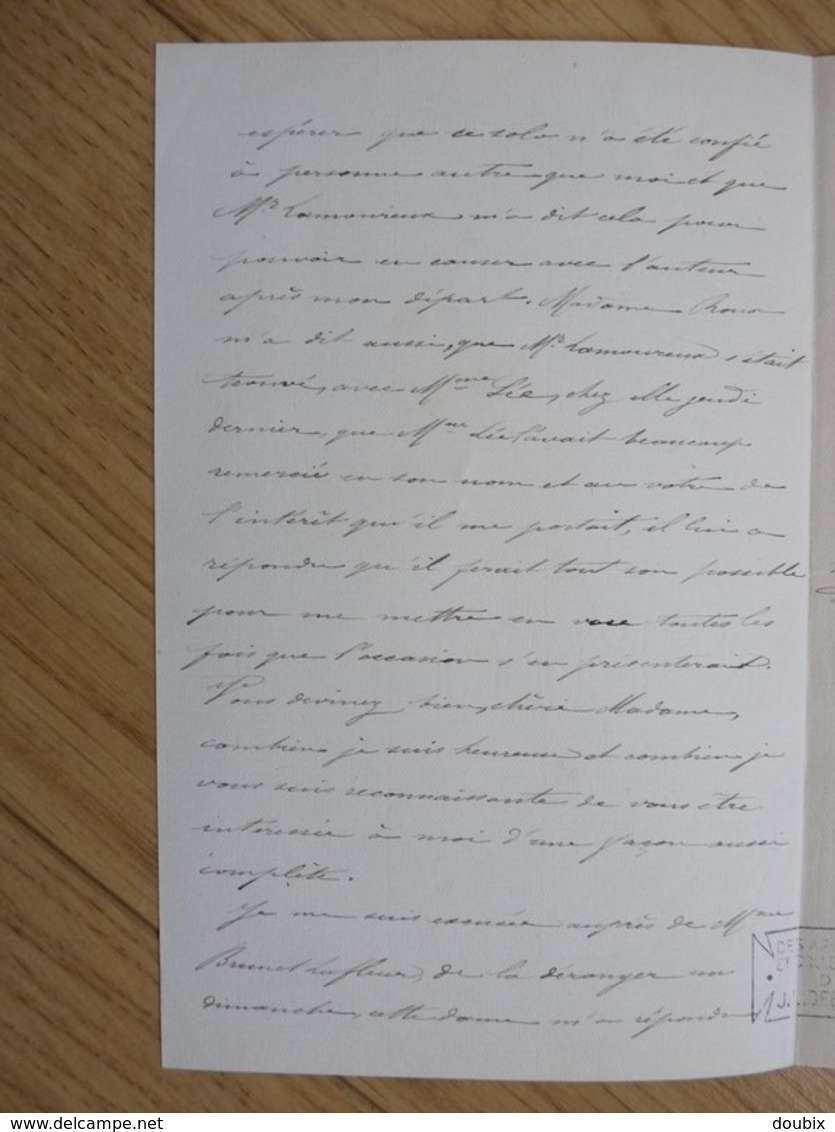 espérer que ce solo n'a été confié
à personne autre que moi et que
Mr Lamoureux m'a dit cela pour
pouvoir en causer avec l'auteur
après mon départ. Madame
m'a dit aussi, que Mr Lamoureux s'était
trouvé, avec Mme Lée, chez elle jeudi
dernier, que Mme Lée l'avait beaucoup
remercié en son nom et au vôtre de
l'intérêt qu'il me portait, il lui a
répondu qu'il ferait tout son possible
pour me mettre en vue toutes les
fois que l'occasion s'en présenterait.
Vous devinez bien, chère Madame,
combien je suis heureuse et combien je
vous suis reconnaissante de vous être
intéressée à moi d'une façon aussi
complète.
Je me suis excusée auprès de Mme
Brunet Lafleur, de la déranger un
dimanche, cette dame m'a répondu
https://www.delcampe.net
doubix